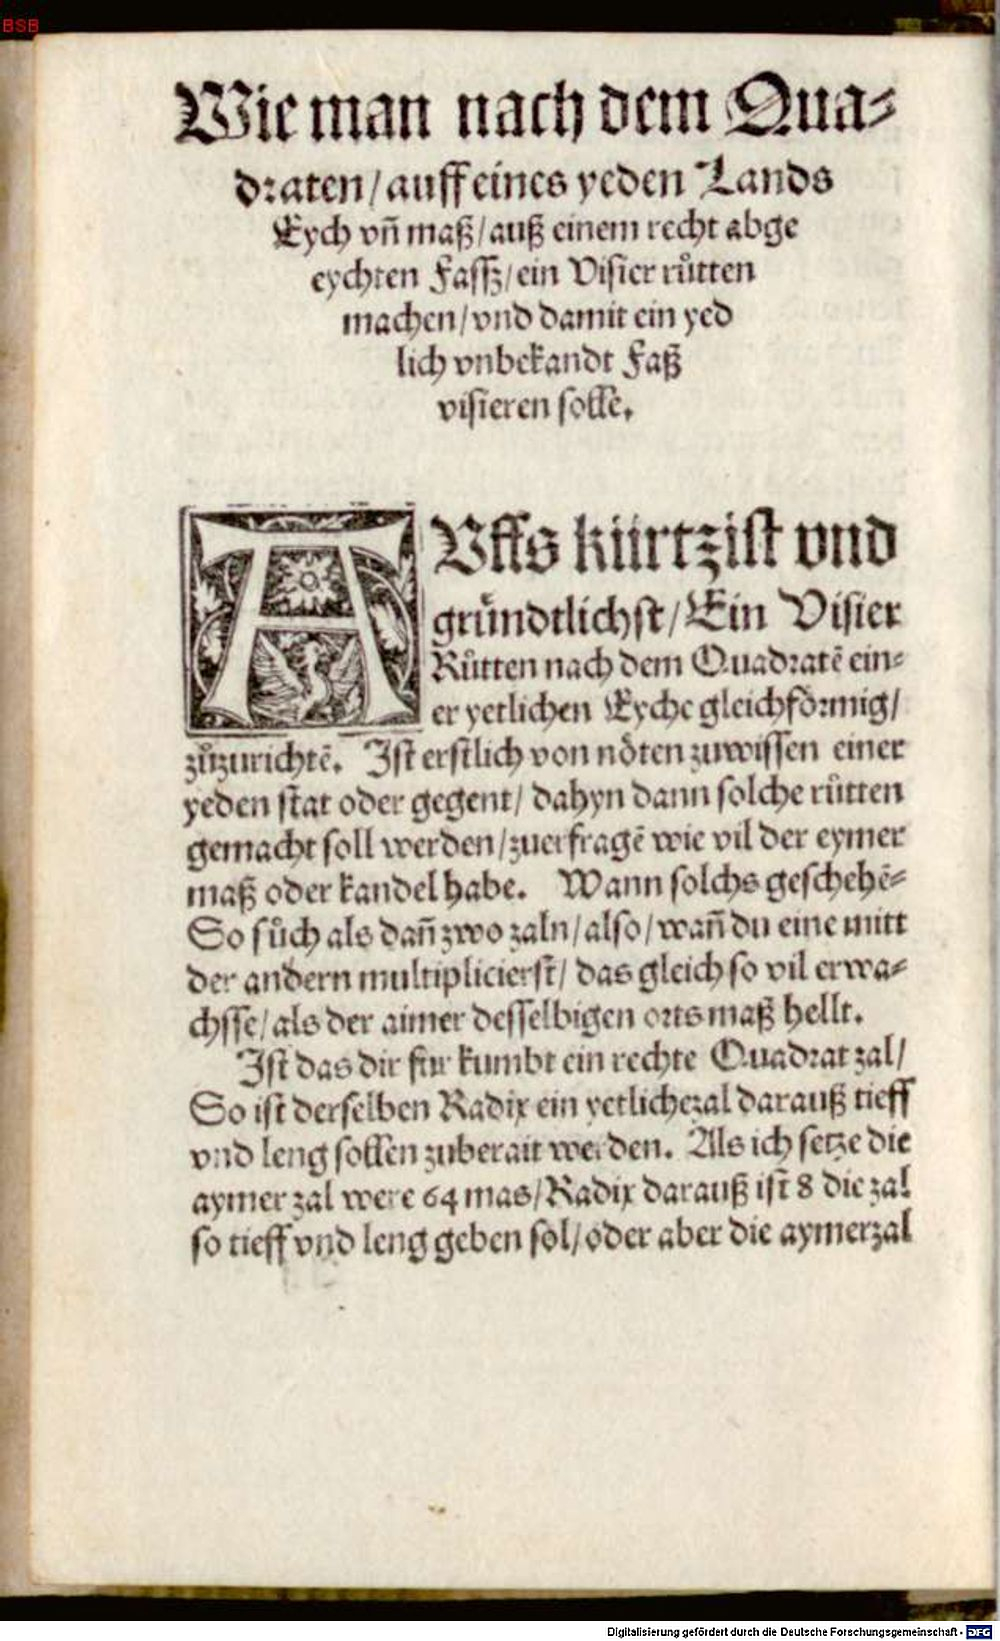 BSB
Wie man nach dem Qua-
draten/auff eines yeden Lands
Eych vñ maß/auß einem recht abge
eychten Fassz/ein Visier růtten
machen/vnd damit ein yed
lich vnbekandt Faß
visieren solle.
AUffs kürtzist vnd
gründtlichst/Ein Visier
Růtten nach dem Quadratē ein-
er yetlichen Eyche gleichförmig/
zůzurichtē. Ist erstlich von nöten zuwissen einer
yeden stat oder gegent/ dahyn dann solche růtten
gemacht soll werden/zuerfragē wie vil der eymer
maß oder kandel habe. Wann solchs geschehē-
So sůch als dañ zwo zaln/also/wañ du eine mitt
der andern multiplicierst/ das gleich so vil erwa-
chsse/als der aimer desselbigen orts maß hellt.
Ist das dir für kumbt ein rechte Quadrat zal/
So ist derselben Radix ein yetlichezal darauß tieff
vnd leng sollen zuberait werden. Als ich setze die
aymer zal were 64 mas/Radix darauß ist 8 die zal
so tieff vnd leng geben sol/oder aber die aymerzal
Digitalisierung gefördert durch die Deutsche Forschungsgemeinschaft - DFG